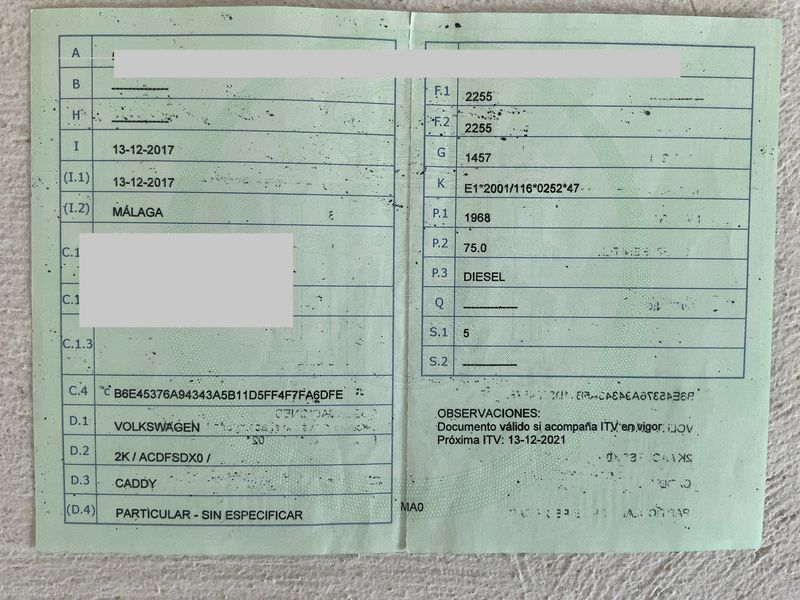 A
B
H
I 13-12-2017
(I.1) 13-12-2017
(I.2) MÁLAGA
C.1
C.1
C.1.3
C.4 °C B6E45376A94343A5B11D5FF4F7FA6DFE
D.1 VOLKSWAGEN
D.2 2K / ACDFSDX0 /
D.3 CADDY
(D.4) PARTICULAR - SIN ESPECIFICAR
MA0
F.1 2255
F.2 2255
G 1457
K E1*2001/116*0252*47
P.1 1968
P.2 75.0
P.3 DIESEL
Q
S.1 5
S.2
OBSERVACIONES:
Documento válido si acompaña ITV en vigor.
Próxima ITV: 13-12-2021